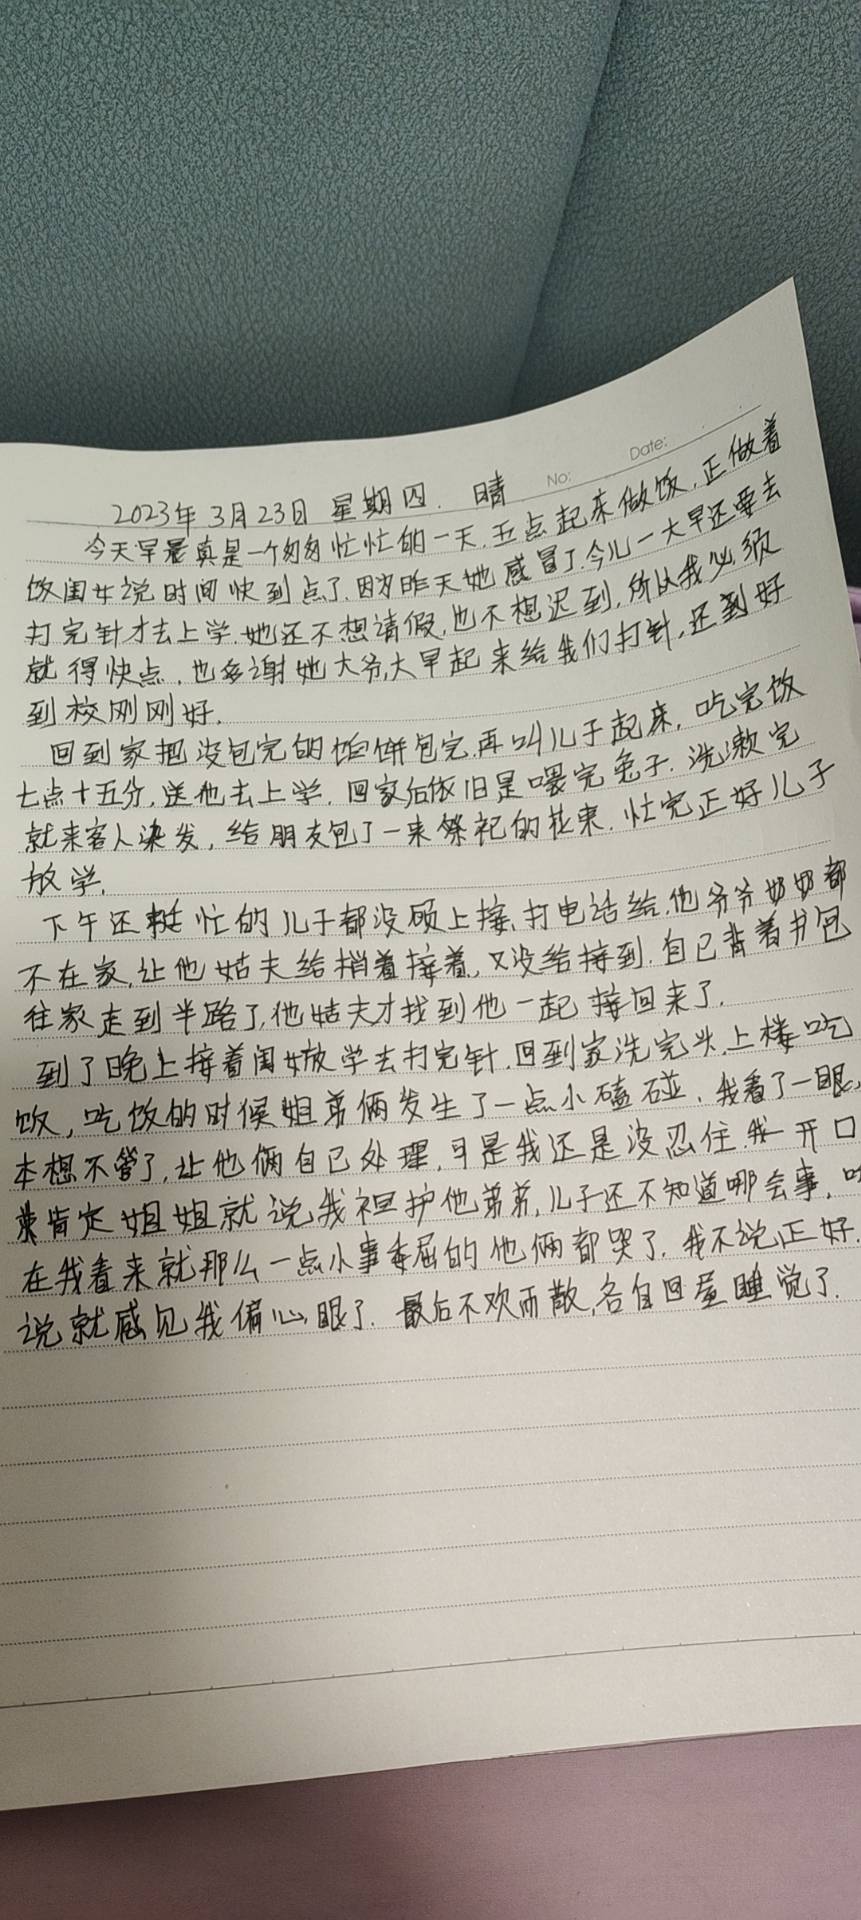 No: Date:
2023年3月23日 星期四. 晴
今天早晨真是一个匆匆忙忙的一天.五点起来做饭,正做着
饭闺女说时间快到点了.因为昨天她感冒了.今儿一大早还要去
打完针才去上学.她还不想请假,也不想迟到,所以我必须
就得快点.也多谢她大爷,大早起来给我们打针,还到好
到校刚刚好.
回到家把没包完的馅饼包完.再叫儿子起床,吃完饭
七点十五分,送他去上学.回家后依旧是喂完兔子.洗漱完
就来客人染发,给朋友包了一束祭祀的花束.忙完正好儿子
放学.
下午还挺忙的儿子都没顾上接,打电话给,他爷爷奶奶都
不在家,让他姑夫给捎着接着,又没给接到.自己背着书包
往家走到半路了,他姑夫才找到他一起接回来了.
到了晚上接着闺女放学去打完针.回到家洗完头.上楼吃
饭,吃饭的时候姐弟俩发生了一点小磕碰.我看了一眼,
本想不管了,让他俩自己处理,可是我还是没忍住.我一开口
肯定姐姐就说我袒护他弟弟,儿子还不知道哪会事.
在我看来就那么一点小事委屈的他俩都哭了.我不说正好.
说就感见我偏心眼了.最后不欢而散,各自回屋睡觉了.